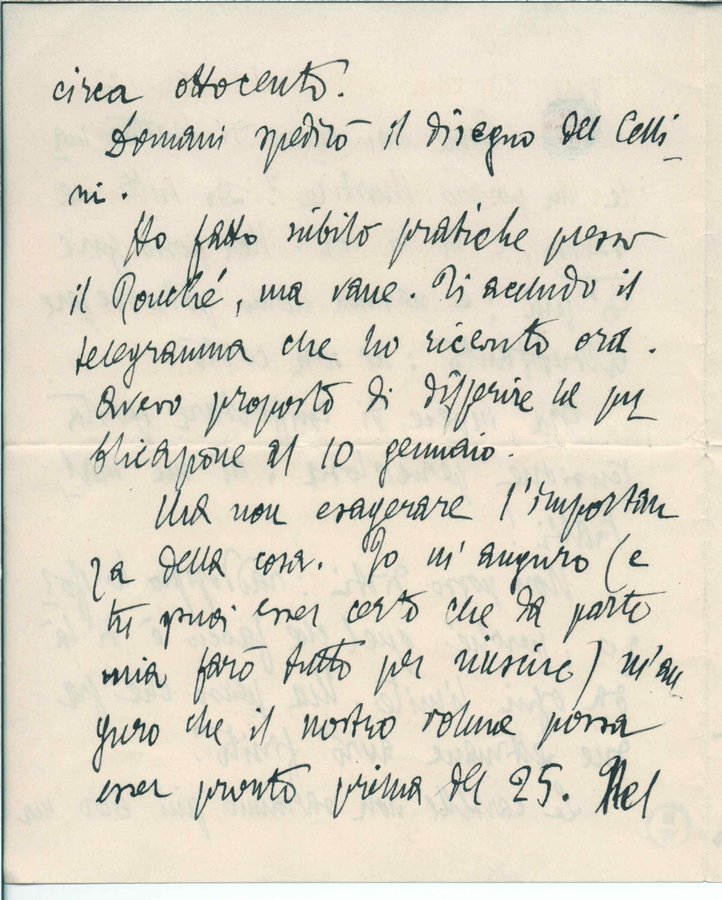 circa ottocento.
Domani spedirò il disegno del Celli
ni.
Ho fatto subito pratiche presso
il Rouché, ma vane. Ti accludo il
telegramma che ho ricevuto ora.
Avevo proposto di differire la pu
blicazione al 10 gennaio.
Ma non esagerare l'importan
za della cosa. Io m'auguro (e
tu puoi esser certo che da parte
mia farò tutto per riuscire) m'au
guro che il nostro volume possa
esser pronto prima del 25. Nel